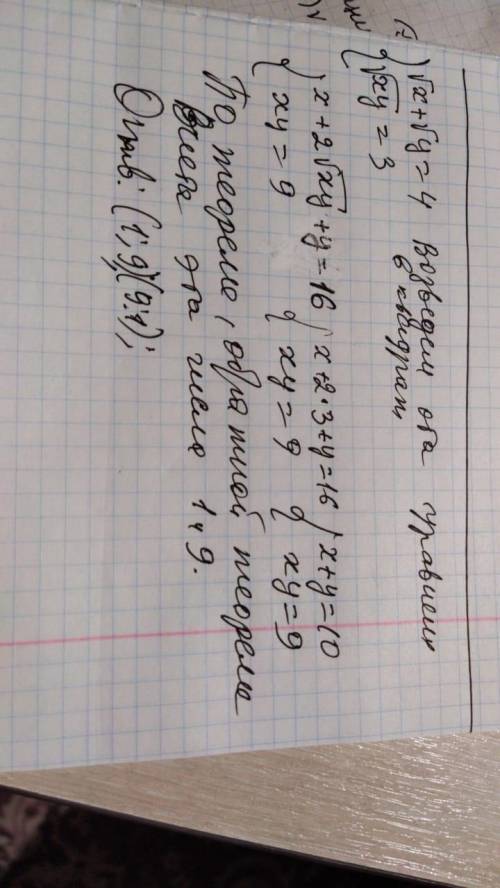 { √x + √y = 4 Возведем оба уравнения
{ √xy = 3 в квадрат
{ x + 2√xy + y = 16 { x + 2·3 + y = 16 { x + y = 10
{ xy = 9 { xy = 9 { xy = 9
По теореме, обратной теореме
Виета эта числа 1 и 9.
Ответ: (1; 9)(9; 1);